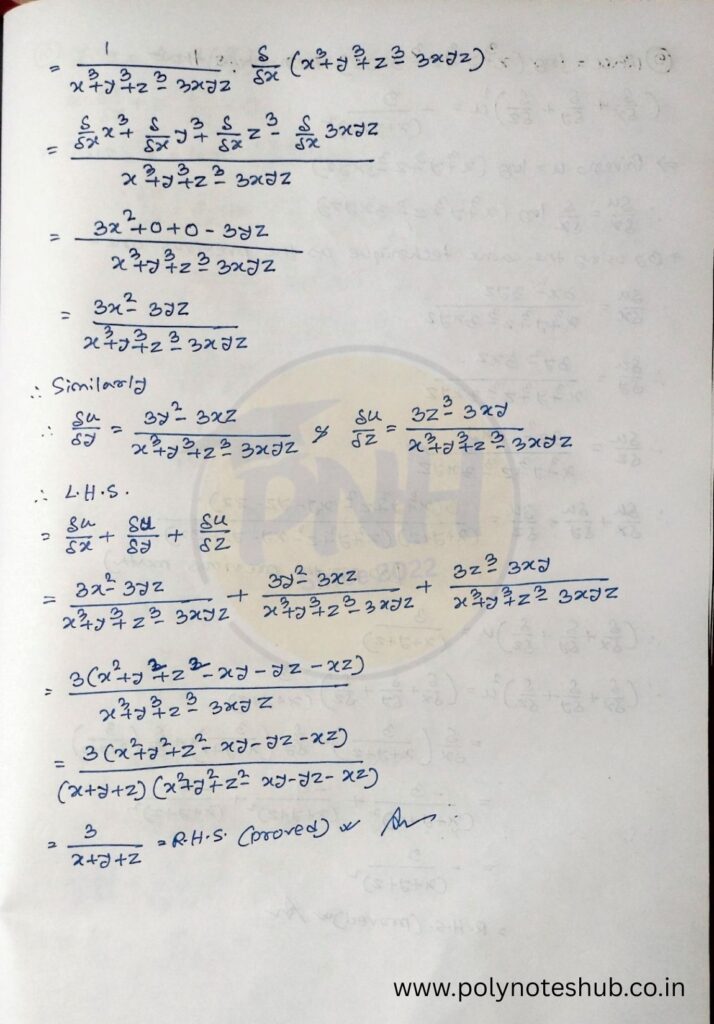 = 1/(x³+y³+z³-3xyz) · δ/δx (x³+y³+z³-3xyz)
= (δ/δx x³ + δ/δx y³ + δ/δx z³ - δ/δx 3xyz)/(x³+y³+z³-3xyz)
= (3x²+0+0-3yz)/(x³+y³+z³-3xyz)
= (3x²-3yz)/(x³+y³+z³-3xyz)
∴ Similarly
∴ δu/δy = (3y²-3xz)/(x³+y³+z³-3xyz) & δu/δz = (3z³-3xy)/(x³+y³+z³-3xyz)
∴ L.H.S.
= δu/δx + δu/δy + δu/δz
= (3x²-3yz)/(x³+y³+z³-3xyz) + (3y²-3xz)/(x³+y³+z³-3xyz) + (3z³-3xy)/(x³+y³+z³-3xyz)
= 3(x²+y²+z²-xy-yz-xz)/(x³+y³+z³-3xyz)
= 3(x²+y²+z²-xy-yz-xz)/((x+y+z)(x²+y²+z²-xy-yz-xz))
= 3/(x+y+z) = R.H.S. (proved) Ans
PNH
2022
www.polynoteshub.co.in